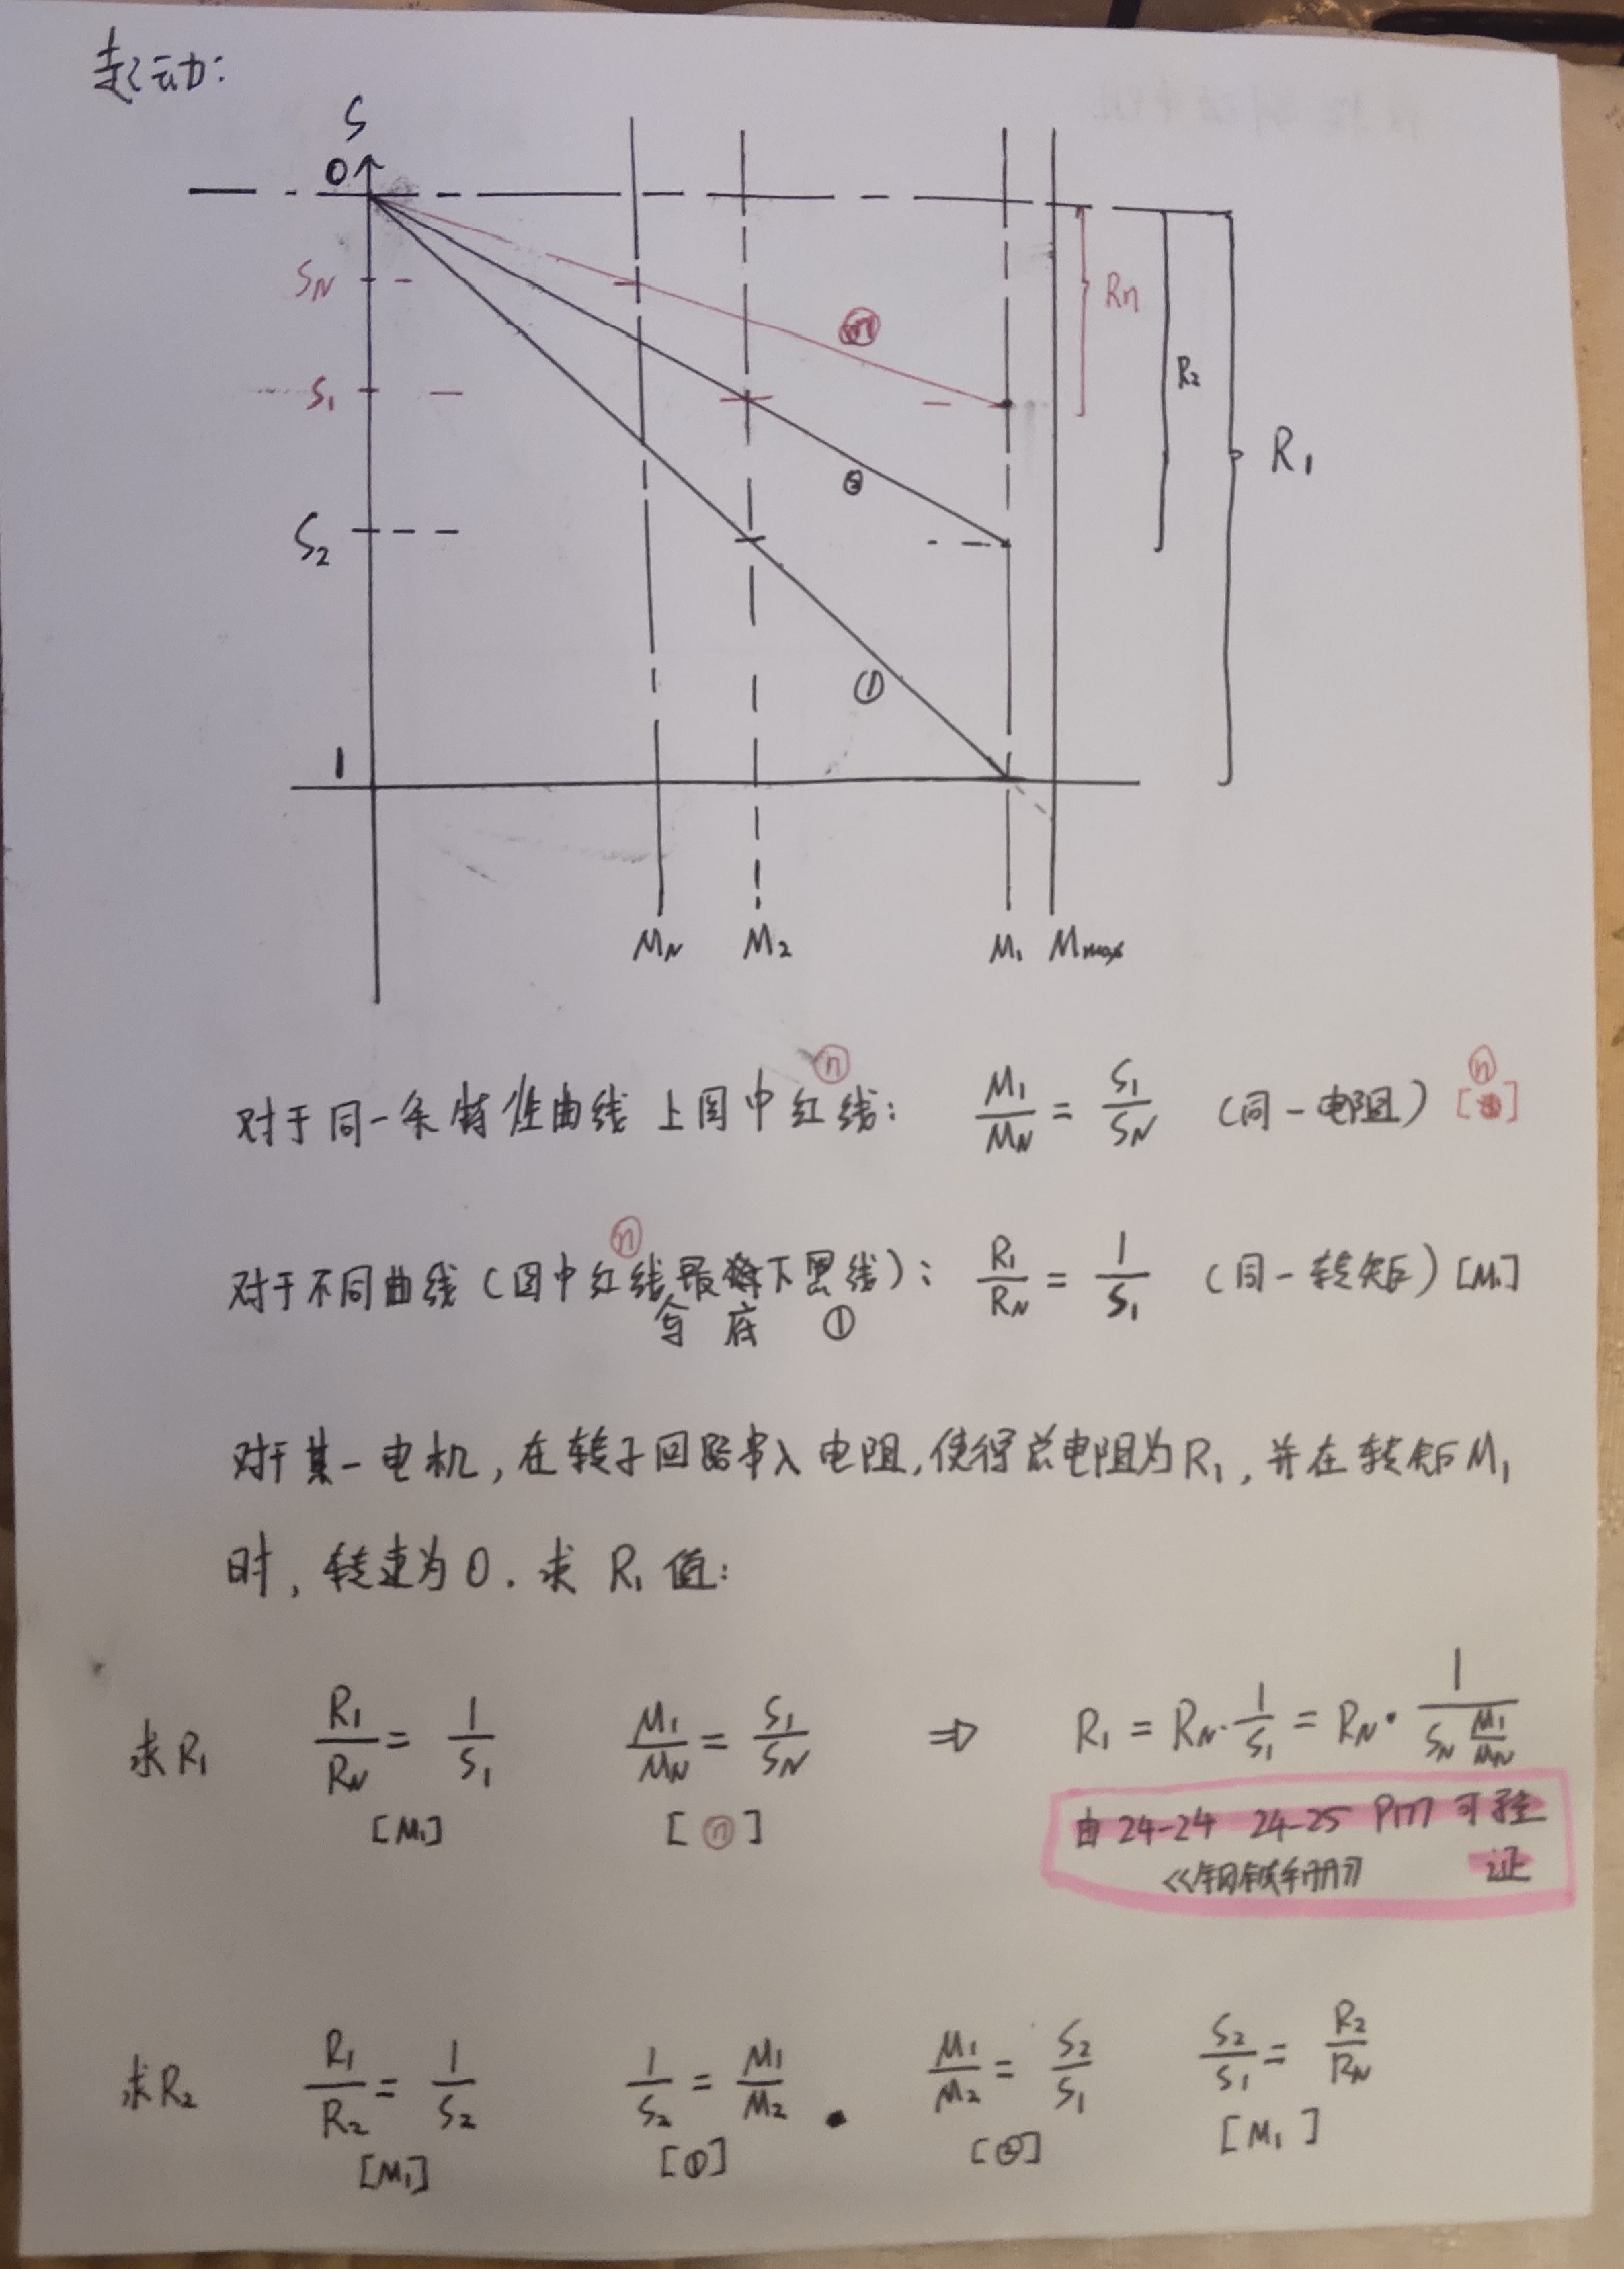 起动:
S
0
SN
S1
S2
1
Rn
R2
R1
②
①
MN M2 M1 Mmax
ⓝ ⓝ
对于同一条特性曲线 上图中红线: M1/MN = S1/SN (同一电阻) [ ]
ⓝ
对于不同曲线(图中红线最下黑线): R1/RN = 1/S1 (同一转矩) [M1]
与 底 ①
对于某一电机,在转子回路串入电阻,使得总电阻为R1,并在转矩M1
时,转速为0.求 R1 值:
求R1 R1/RN = 1/S1 M1/MN = S1/SN ⇒ R1 = RN·1/S1 = RN·1/(SN M1/MN)
[M1] [ⓝ]
由 24-24 24-25 可验
《钢铁手册》 证
求R2 R1/R2 = 1/S2 1/S2 = M1/M2 M1/M2 = S2/S1 S2/S1 = R2/RN
[M1] [①] [②] [M1]